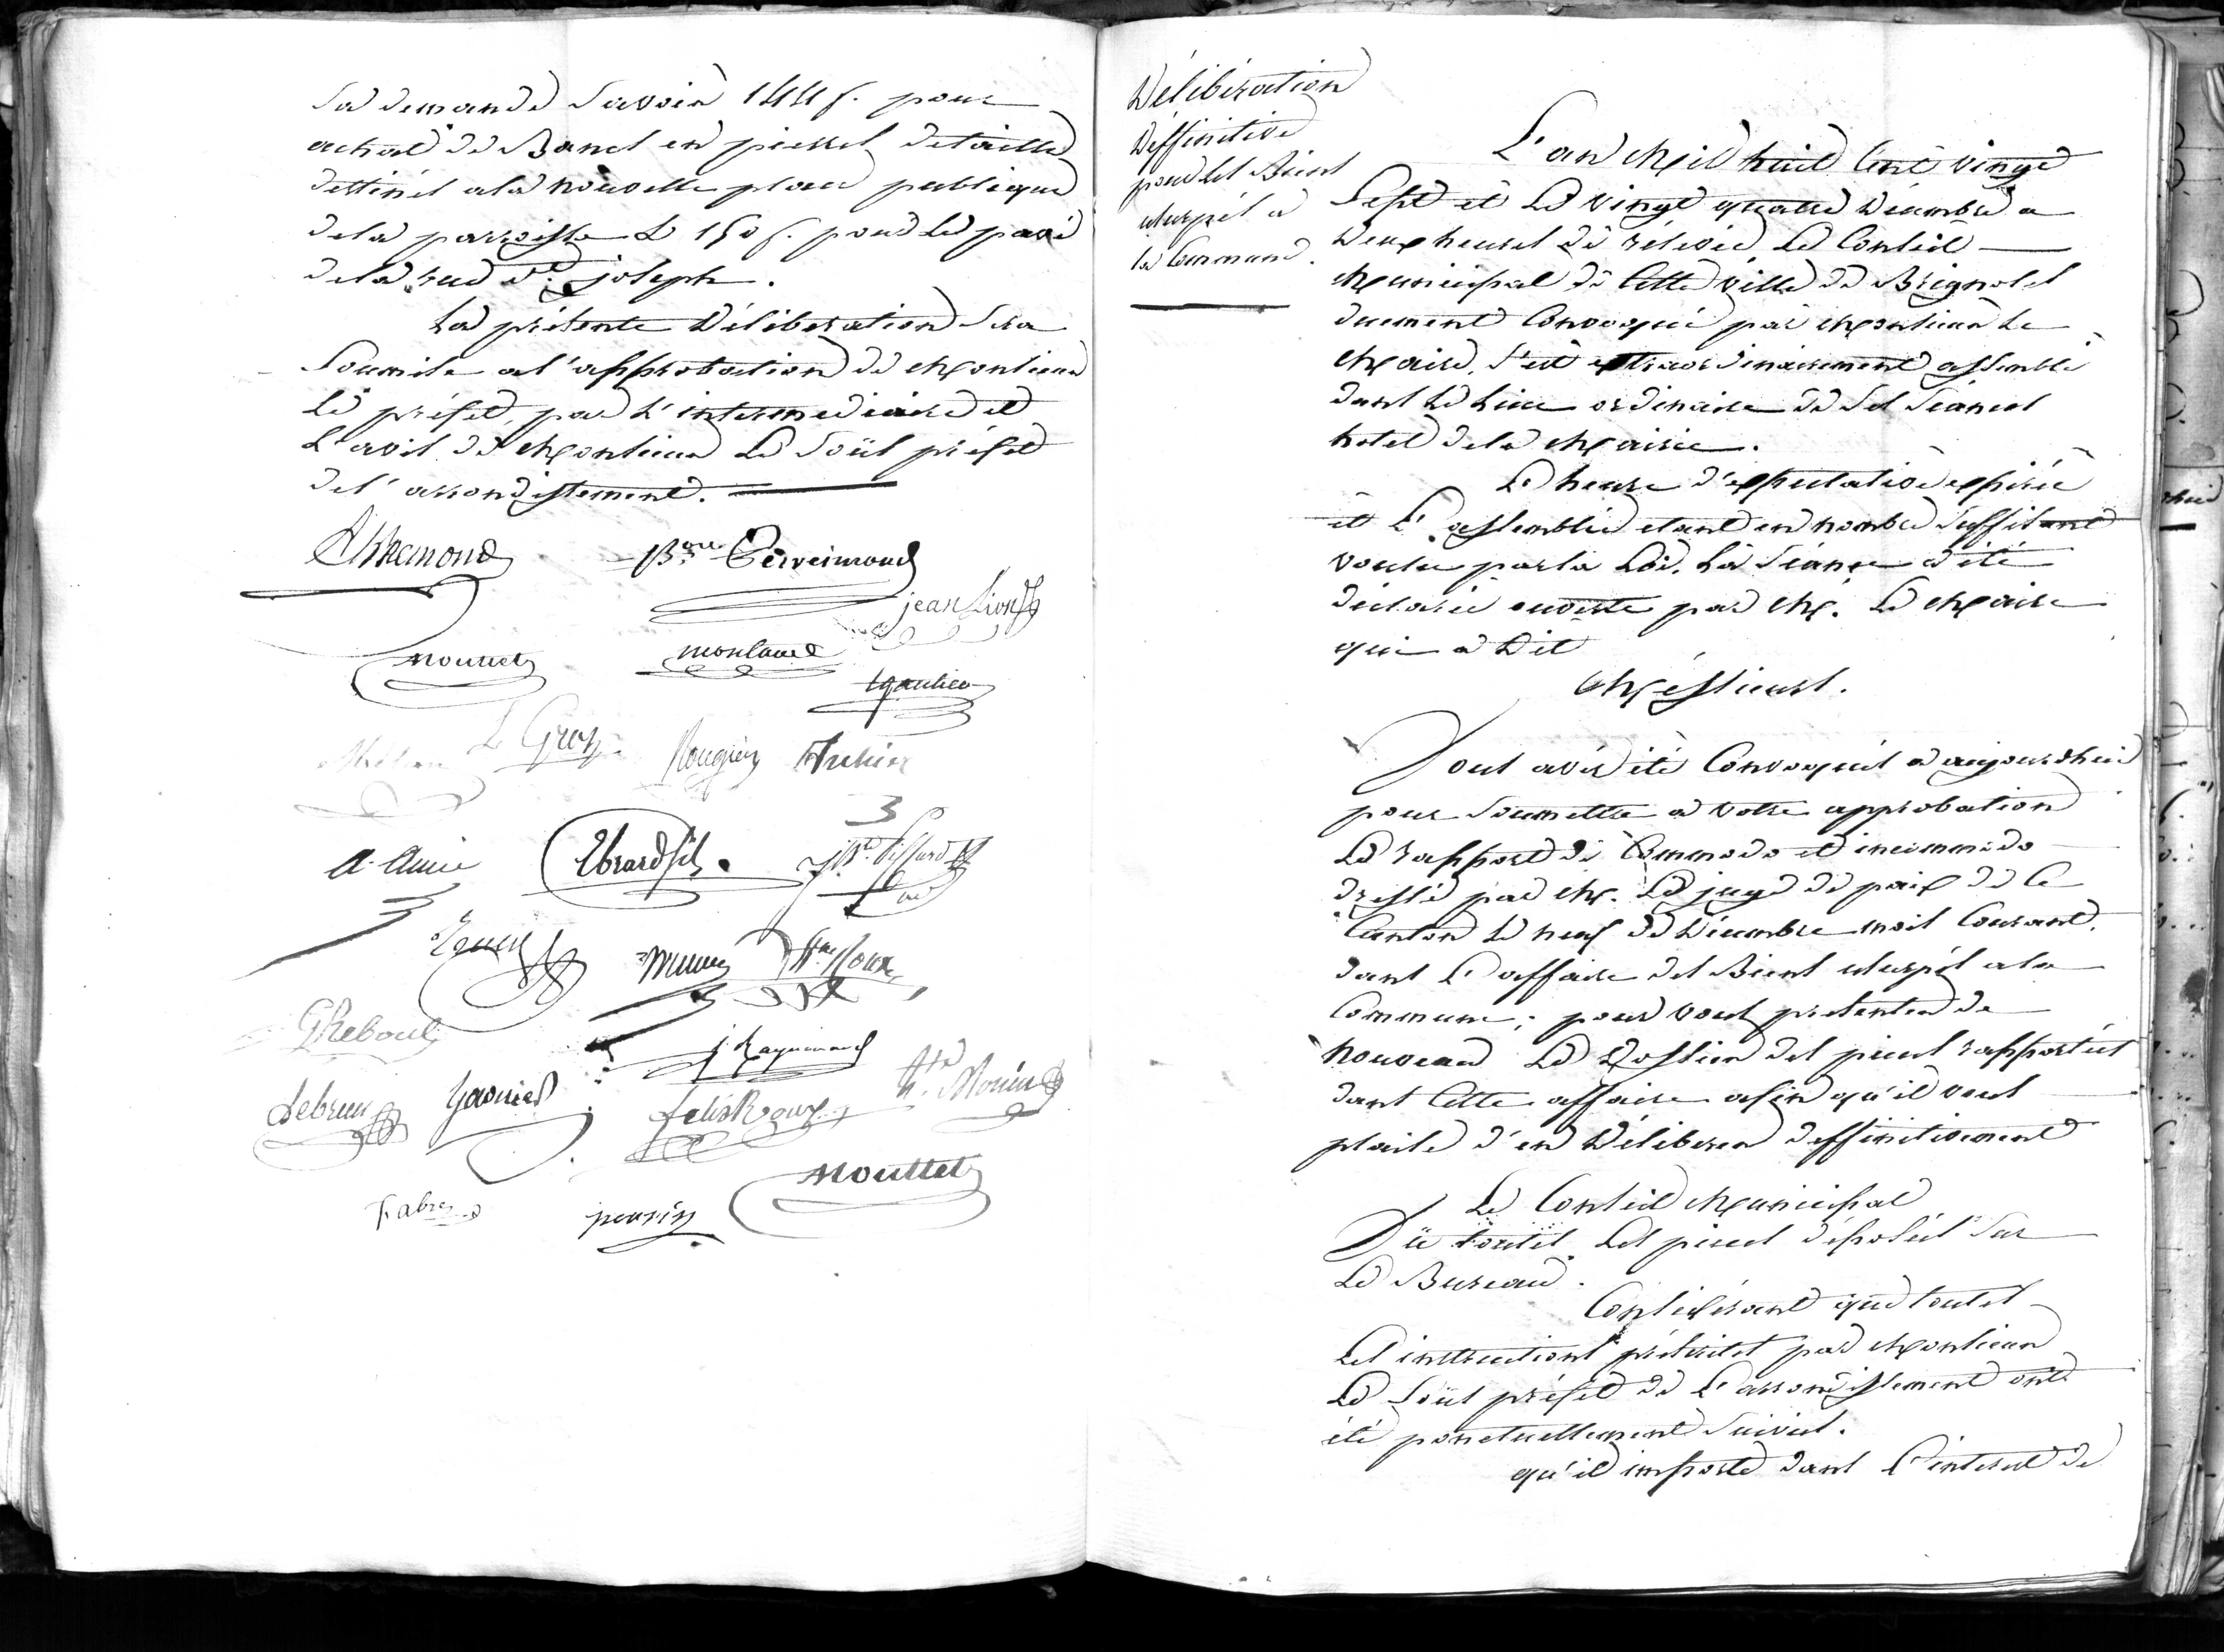 Sa demande Savoir 144 f. pour
achat de Bancs en pierres detaille
destinés ala nouvelle place publique
dela parroisse & 150 f. pour le pavé
dela rue St. joseph.
La présente Délibération Sera
Soumise al'approbation de Monsieur
Le préfet, par L'intermediaire et
L'avis de Monsieur Le Soüs préfet
del'arrondissement.
Bre Perreimond
jean Lion
Mouttet
montaud
L Gros
Rougier
A. Amic
Ebrard fils
Roux
GReboul
J. Raynaud
Lebrun Garnier
felix Roux
Fabre
perrin
Mouttet
Délibération
Déffinitive
pour les Biens
usurpés a
la Commune.
L'an Mil huit Cent vingt
Sept et Le vingt quatre Décembre a
Deux heures de rélevée Le Conseil
Municipal de Cette ville de Brignoles
duement Convoqué par Monsieur Le
Maire, s'est extraordinairement assemblé
dans Le Lieu ordinaire de Ses Séances
hotel dela Mairie.
L'heure d'expectative expirée
et L'assemblée etant en nombre Suffisant
voulu parla Loi. La Séance a été
déclarée ouverte par M. Le Maire
qui a Dit
Messieurs.
Vous avés été Convoqués a aujourdhui
pour Soumettre a votre approbation
Le rapport de Commodo et incommodo
dressé par M. Le juge de paix de Ce
Canton Le neuf de Décembre mois Courant,
dans L'affaire des Biens usurpés ala
Commune; pour vous présenter de
Nouveau Le Dossier des pieces rapportées
dans Cette affaire afin qu'il vous
plaise d'en Déliberer deffinitivement
Le Conseil Municipal
Vü toutes Les pieces déposées Sur
Le Bureau.
Considérant que toutes
Les instructions préscrites par Monsieur
Le Soüs préfet de L'arrondissement ont
été ponctuellement Suivies.
qu'il importe dans L'interet de